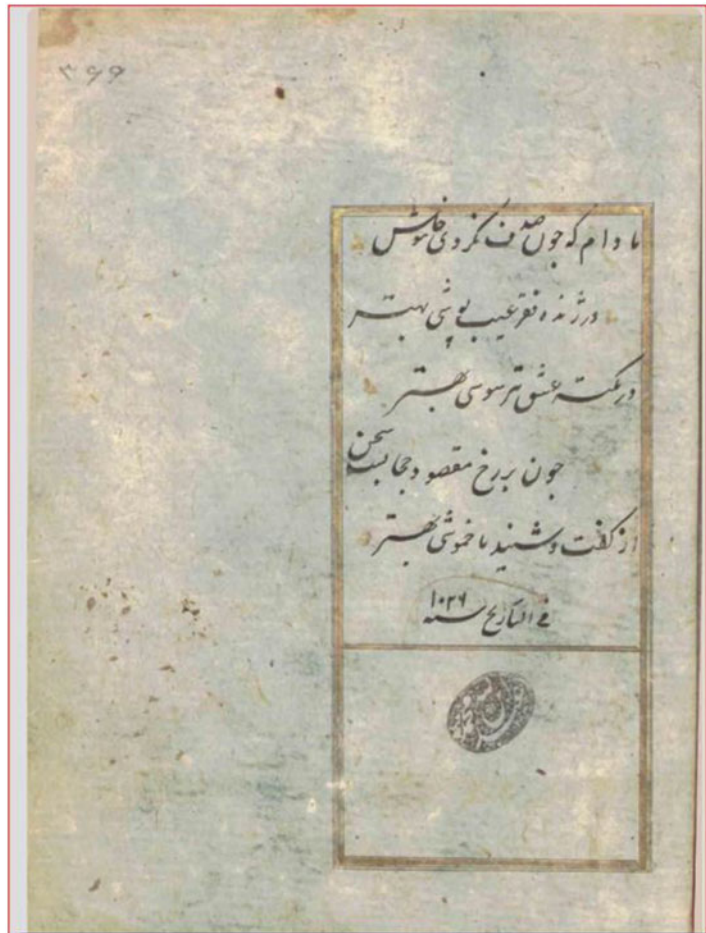 ۳۶۶
مادام که چون صدف نکردی خاموش
در ژنده فقر عیب پوشی بهتر
در نکته عشق تیزهوشی بهتر
چون بر رخ مقصود حجابست سخن
از گفت و شنید ما خموشی بهتر
فی التاریخ سنه ۱۰۲۶